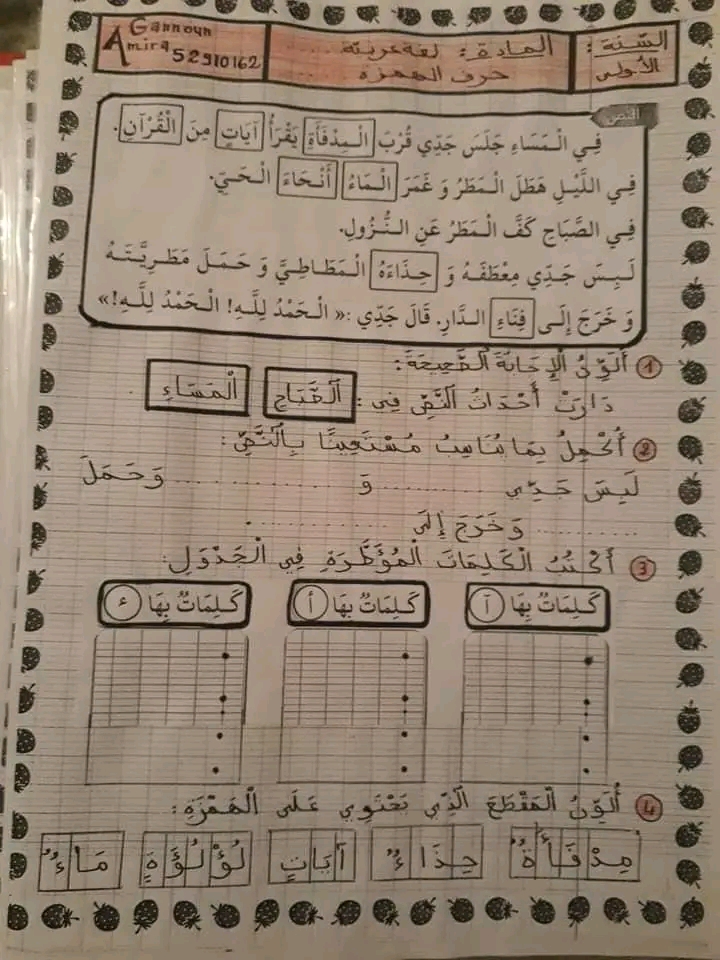 السّنة: الأولى
المادة: لغة عربية
حرف الهمزة
Gannoun
Amira 52910162
النص
فِي الْمَسَاءِ جَلَسَ جَدِّي قُرْبَ الْمِدْفَأَةِ يَقْرَأُ آيَاتٍ مِنَ الْقُرْآنِ.
فِي اللَّيْلِ هَطَلَ الْمَطَرُ وَ غَمَرَ الْمَاءُ أَنْحَاءَ الْحَيِّ.
فِي الصَّبَاحِ كَفَّ الْمَطَرُ عَنِ النُّزُولِ.
لَبِسَ جَدِّي مِعْطَفَهُ وَ حِذَاءَهُ الْمَطَّاطِيَّ وَ حَمَلَ مَطَرِيَّتَهُ
وَ خَرَجَ إِلَى فِنَاءِ الدَّارِ. قَالَ جَدِّي :« الْحَمْدُ لِلَّهِ! الْحَمْدُ لِلَّهِ!»
1 أُلَوِّنُ الْإِجَابَةَ الصَّحِيحَةَ:
دَارَتْ أَحْدَاثُ النَّصِّ فِي: الصَّبَاحِ الْمَسَاءِ .
2 أُكْمِلُ بِمَا يُنَاسِبُ مُسْتَعِينًا بِالنَّصِّ:
لَبِسَ جَدِّي .......... وَ .......... وَحَمَلَ
.......... وَخَرَجَ إِلَى .......... .
3 أَكْتُبُ الْكَلِمَاتِ الْمُؤَطَّرَةِ فِي الْجَدْوَلِ:
كَلِمَاتٌ بِهَا آ
كَلِمَاتٌ بِهَا أ
كَلِمَاتٌ بِهَا ء
4 أُلَوِّنُ الْمَقْطَعَ الَّذِي يَحْتَوِي عَلَى الْهَمْزَةِ:
مِدْفَأَةٌ حِذَاءٌ آيَاتٍ لُؤْلُؤَةٍ مَاءٌ